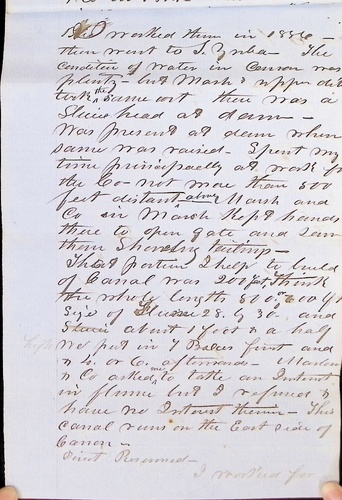 worked there in 1856 -
then went to S. Yuba - The
condition of water in Canon was
plenty - but Marsh & upper ditch
took the same out there was a
Sluice head at dam -
Was present at dam when
same was raised. Spent my
time principally at work for
the Co - not more than 500
feet distant, above Marsh and
Co in Marsh Kept hands
there to open gate and
them Shoveling tailings -
That portion I help to build
of Canal was 200 yds, think
the whole length 500 or 600 yds
Size of Flume 28. by 30. and
about 1 foot & a half
We put in 7 Boxes first and
5. or 6. afterwards - 
& Co asked me to take an Interest
in flume but I refused &
have no Interest therein - This
canal runs on the East side of
Canon -
Direct Resumed -
I worked for